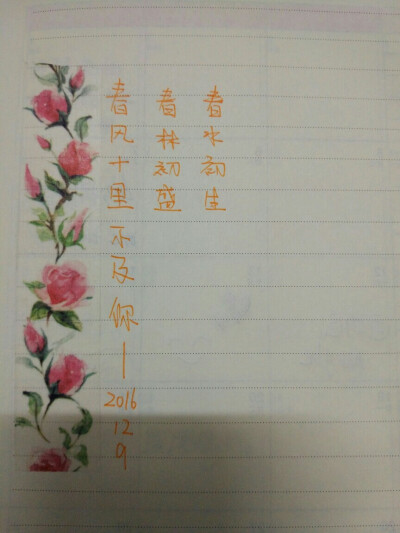 春水初生
春林初盛
春风十里不及你—
2016
12
9